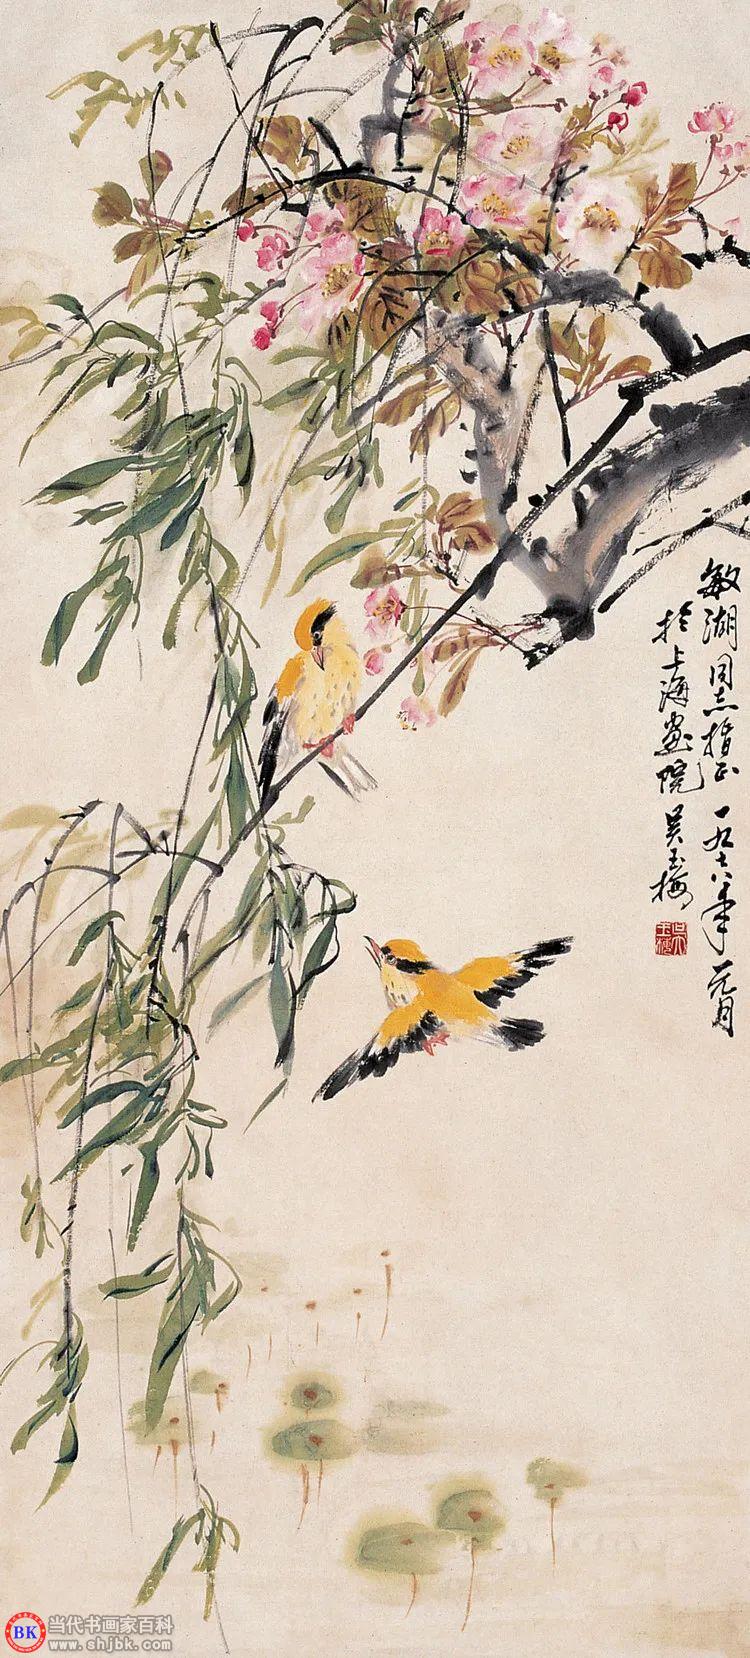 敏湖同志指正 一九七八年元月
於上海画院 吴玉梅
吴玉梅
BK
当代书画家百科
www.shjbk.com